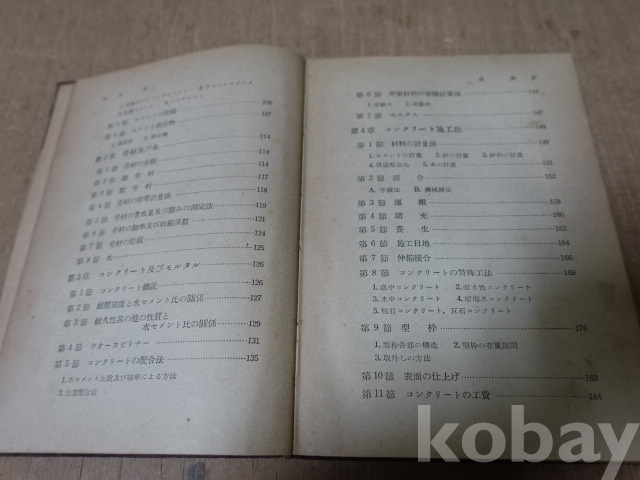 106
107
114
114
第2節 細骨材 116
第3節 粗骨材 117
第4節 骨材の標準計量法 118
119
121
124
第7節 骨材の貯蔵
第8節 水 125
第3章 コンクリート及びモルタル 126
第1節 コンクリート總說 126
第2節 耐壓强度と水セメント比の關係 127
第3節 耐久性其の他の性質と
水セメント比の關係 129
第4節 ウオーカビリチー 131
第5節 コンクリートの配合法 135
1.水セメント比說及び細率による方法
2.任意配合法
第6節 所要材料の容積計算法 144
第7節 モルタル 147
第4章 コンクリート施工法 149
第1節 材料の計量法 149
1.セメントの計量 2.砂の計量 3.砂利の計量
4.現場配合比 5.水の計量
第2節 混合 152
A.手練法 B.機械練法
第3節 運搬 158
第4節 塡充 160
第5節 養生 162
第6節 施工目地 164
第7節 伸縮接合 166
第8節 コンクリートの特殊工法 169
1.寒中コンクリート 2.耐水性コンクリート
3.水中コンクリート 4.耐海水コンクリート
5.粗石コンクリート、豆石コンクリート
第9節 型枠 176
1.型枠各部の構造 2.型枠の存置期間
3.取外しの方法
第10節 表面の仕上げ 183
第11節 コンクリートの工費 184
kobay